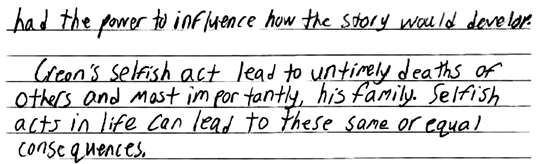 had the power to influence how the story would develop.
Creon's selfish act lead to untimely deaths of
others and most importantly, his family. Selfish
acts in life can lead to these same or equal
consequences.